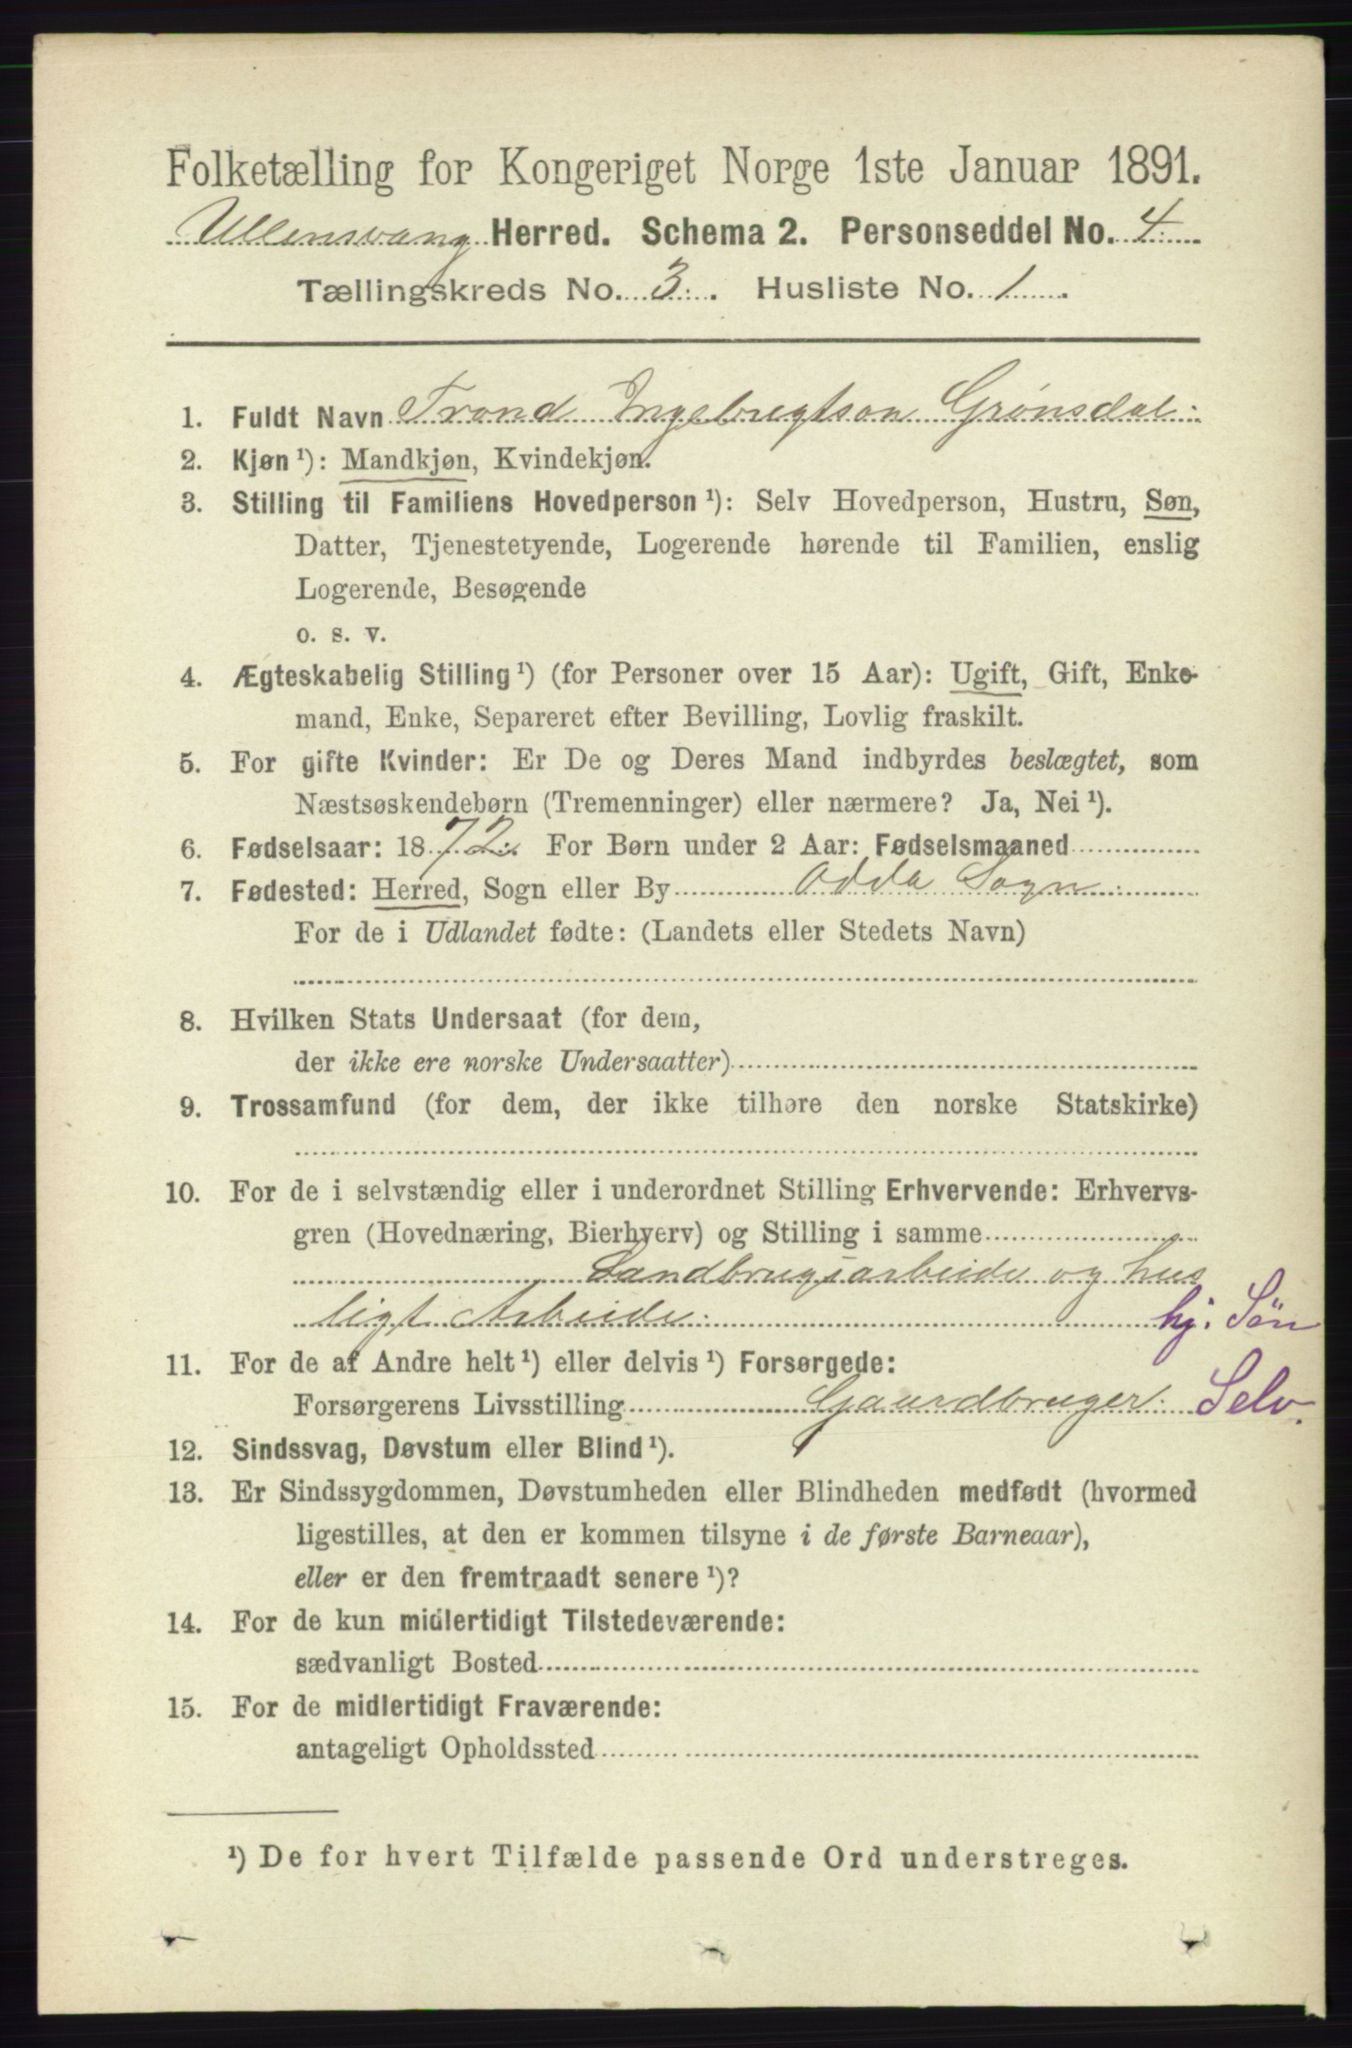 Folketælling for Kongeriget Norge 1ste Januar 1891.
Ullensvang Herred. Schema 2. Personseddel No. 4
Tællingskreds No. 3. Husliste No. 1.
1. Fuldt Navn Trond Ingebregtson Grønsdal
2. Kjøn ¹): Mandkjøn, Kvindekjøn.
3. Stilling til Familiens Hovedperson ¹): Selv Hovedperson, Hustru, Søn,
Datter, Tjenestetyende, Logerende hørende til Familien, enslig
Logerende, Besøgende
o. s. v.
4. Ægteskabelig Stilling ¹) (for Personer over 15 Aar): Ugift, Gift, Enke-
mand, Enke, Separeret efter Bevilling, Lovlig fraskilt.
5. For gifte Kvinder: Er De og Deres Mand indbyrdes beslægtet, som
Næstsøskendebørn (Tremenninger) eller nærmere? Ja, Nei ¹).
6. Fødselsaar: 1872. For Børn under 2 Aar: Fødselsmaaned
7. Fødested: Herred, Sogn eller By Odda Sogn
For de i Udlandet fødte: (Landets eller Stedets Navn)
8. Hvilken Stats Undersaat (for dem,
der ikke ere norske Undersaatter)
9. Trossamfund (for dem, der ikke tilhøre den norske Statskirke)
10. For de i selvstændig eller i underordnet Stilling Erhvervende: Erhvervs-
gren (Hovednæring, Bierhverv) og Stilling i samme
Landbrugsarbeide og hus
ligt Arbeide. hj. Søn
11. For de af Andre helt ¹) eller delvis ¹) Forsørgede:
Forsørgerens Livsstilling Gaardbruger. Selv.
12. Sindssvag, Døvstum eller Blind ¹).
13. Er Sindssygdommen, Døvstumheden eller Blindheden medfødt (hvormed
ligestilles, at den er kommen tilsyne i de første Barneaar),
eller er den fremtraadt senere ¹)?
14. For de kun midlertidigt Tilstedeværende:
sædvanligt Bosted
15. For de midlertidigt Fraværende:
antageligt Opholdssted
¹) De for hvert Tilfælde passende Ord understreges.